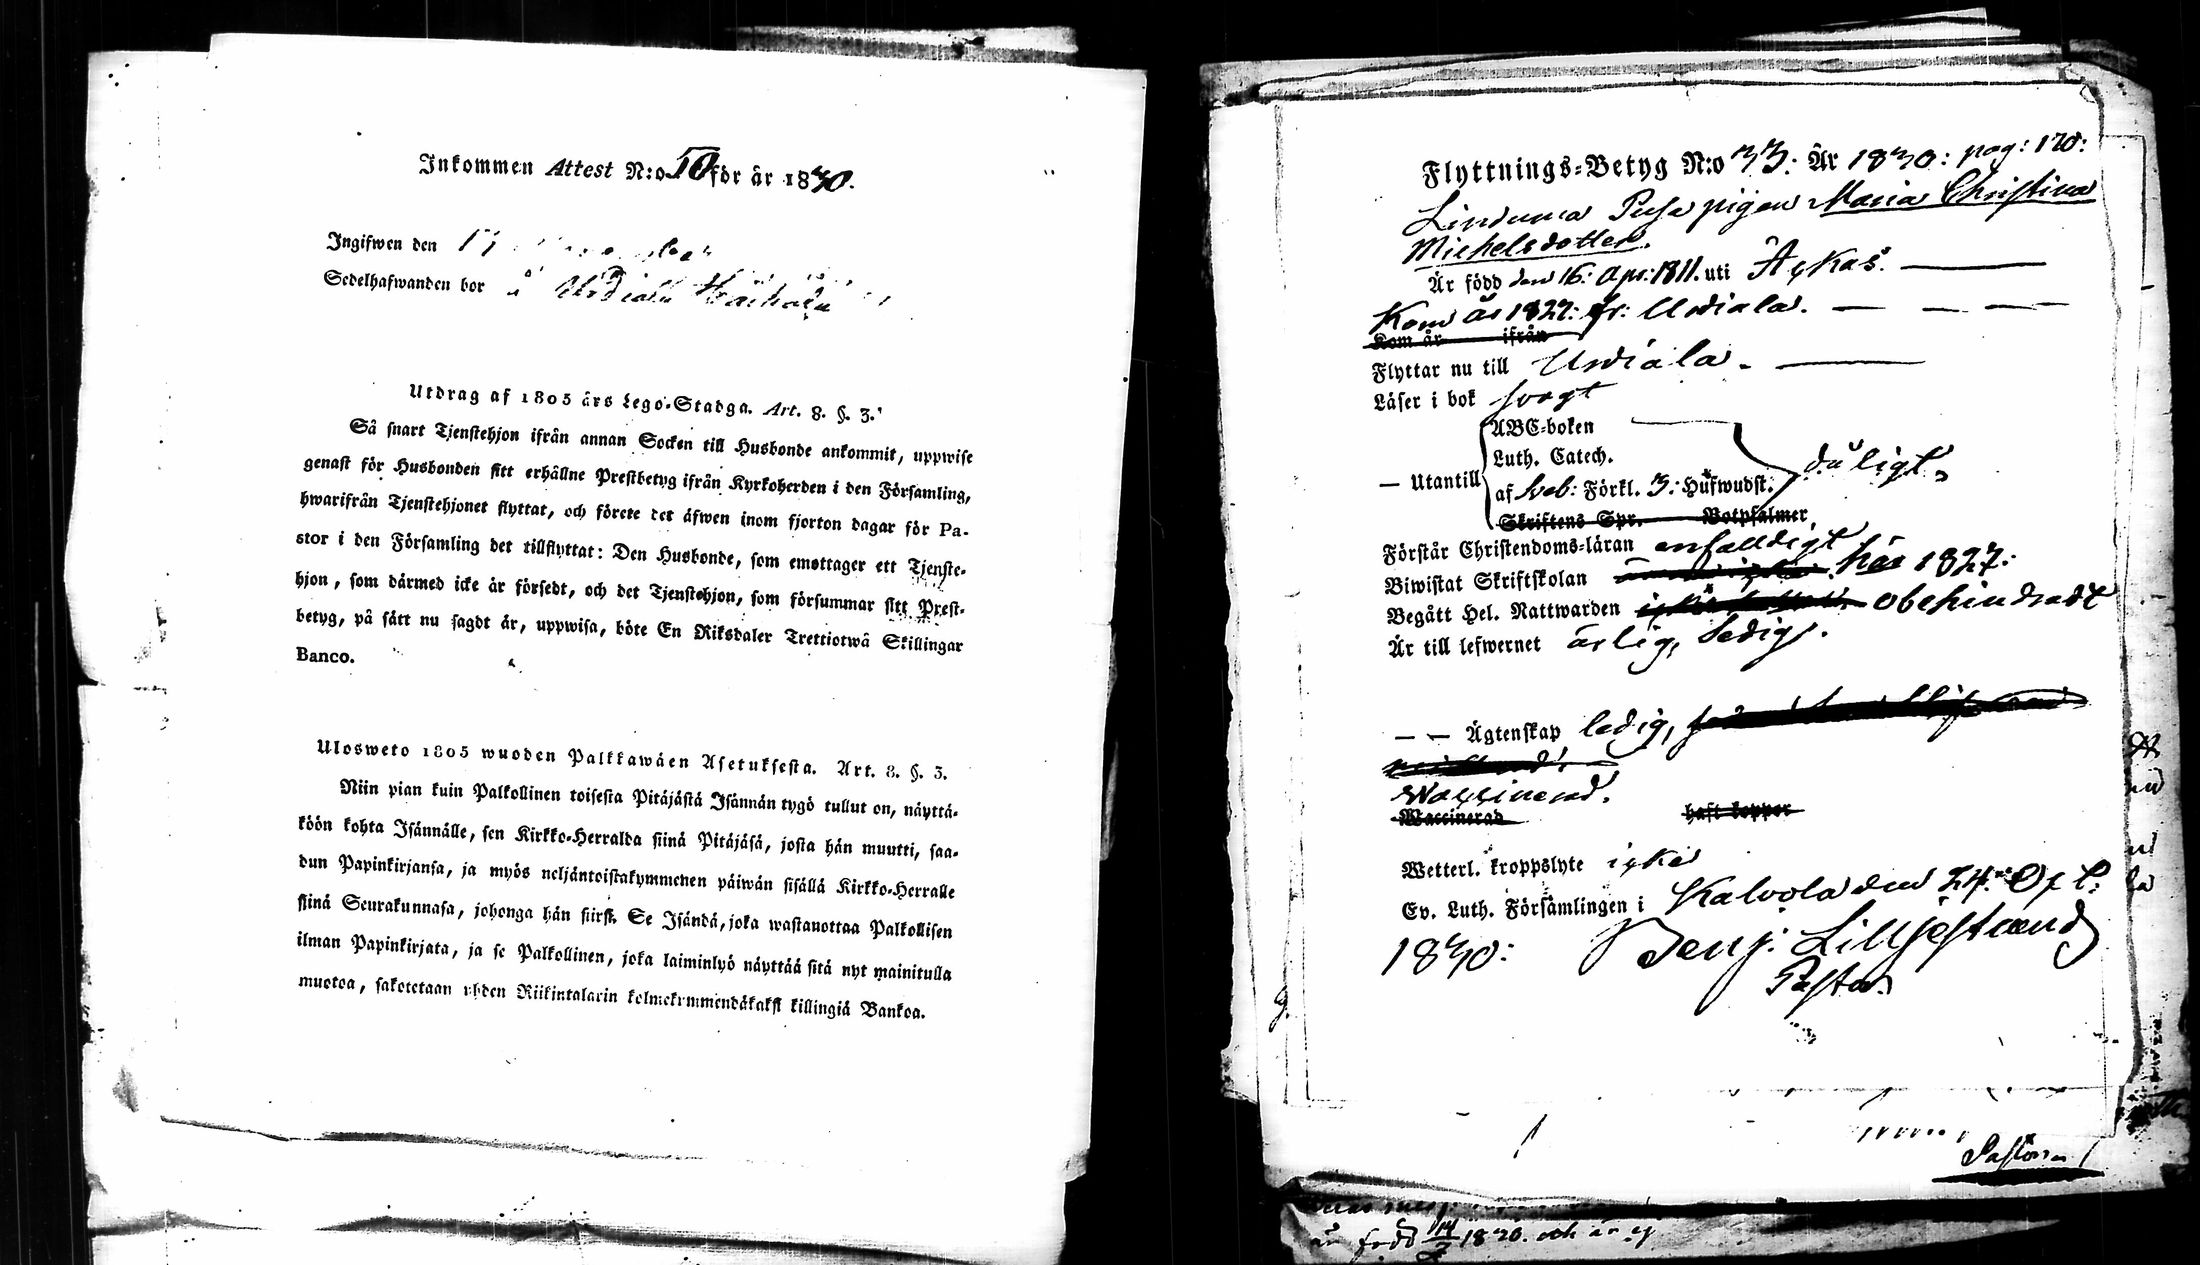 Inkommen Attest N:o 10 för år 1830.
Ingifwen den
Sedelhafwanden bor å Urdiala
Utdrag af 1805 års Lego-Stadga. Art. 8. §. 3.
Så snart Tjenstehjon ifrån annan Socken till Husbonde ankommit, uppwise
genast för Husbonden sitt erhållne Prestbetyg ifrån Kyrkoherden i den Församling,
hwarifrån Tjenstehjonet flyttat, och förete det äfwen inom fjorton dagar för Pa-
stor i den Församling det tillflyttat: Den Husbonde, som emottager ett Tjenste-
hjon, som därmed icke är försedt, och det Tjenstehjon, som försummar sitt Prest-
betyg, på sätt nu sagdt är, uppwisa, böte En Riksdaler Trettiotwå Skillingar
Banco.
Ulosweto 1805 wuoden Palkkawäen Asetuksesta. Art. 8. §. 3.
Niin pian kuin Palkollinen toisesta Pitäjästä Isännän tygö tullut on, näyttä-
köön kohta Isännälle, sen Kirkko-Herralda siinä Pitäjäsä, josta hän muutti, saa-
dun Papinkirjansa, ja myös neljäntoistakymmenen päiwän sisällä Kirkko-Herralle
siinä Seurakunnasa, johonga hän siirsi. Se Isändä, joka wastanottaa Palkollisen
ilman Papinkirjata, ja se Palkollinen, joka laiminlyö näyttää sitä nyt mainitulla
muotoa, sakotetaan yhden Riikintalarin kolmekymmendäkaksi killingiä Bankoa.
Flyttnings-Betyg N:o 33. År 1830: pag: 120:
pigan Maria Christina
Michelsdotter.
Är född den 16: Apr: 1811. uti Ackas.
Kom år 1827: fr: Urdiala.
Kom år ifrån
Flyttar nu till Urdiala.
Läser i bok svagt
ABC-boken
Luth. Catech.
— Utantill dåligt
af Sveb: Förkl. 3: Hufwudst.
Skriftens Spr. Botpsalmer,
Förstår Christendoms-läran enfaldigt
Biwistat Skriftskolan här 1827:
Begått Hel. Nattwarden obehindradt
Är till lefwernet ärlig, ledig.
— — Ägtenskap ledig,
Waccinerad.
Waccinerad haft koppor
Wetterl. kroppslyte icke
Ev. Luth. Församlingen i Kalvola den 24: Oct:
1830: Benj: Lilljestrand
Pastor
Pastorn
är född 14/2 1820. och är ej